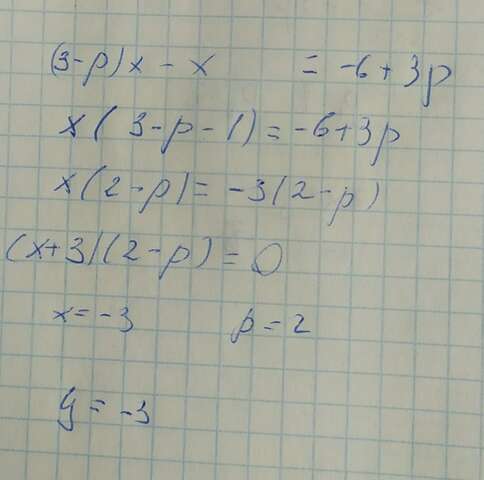 (3-p)x - x = -6 + 3p
x(3-p-1) = -6+3p
x(2-p) = -3(2-p)
(x+3)(2-p) = 0
x = -3 p = 2
y = -3